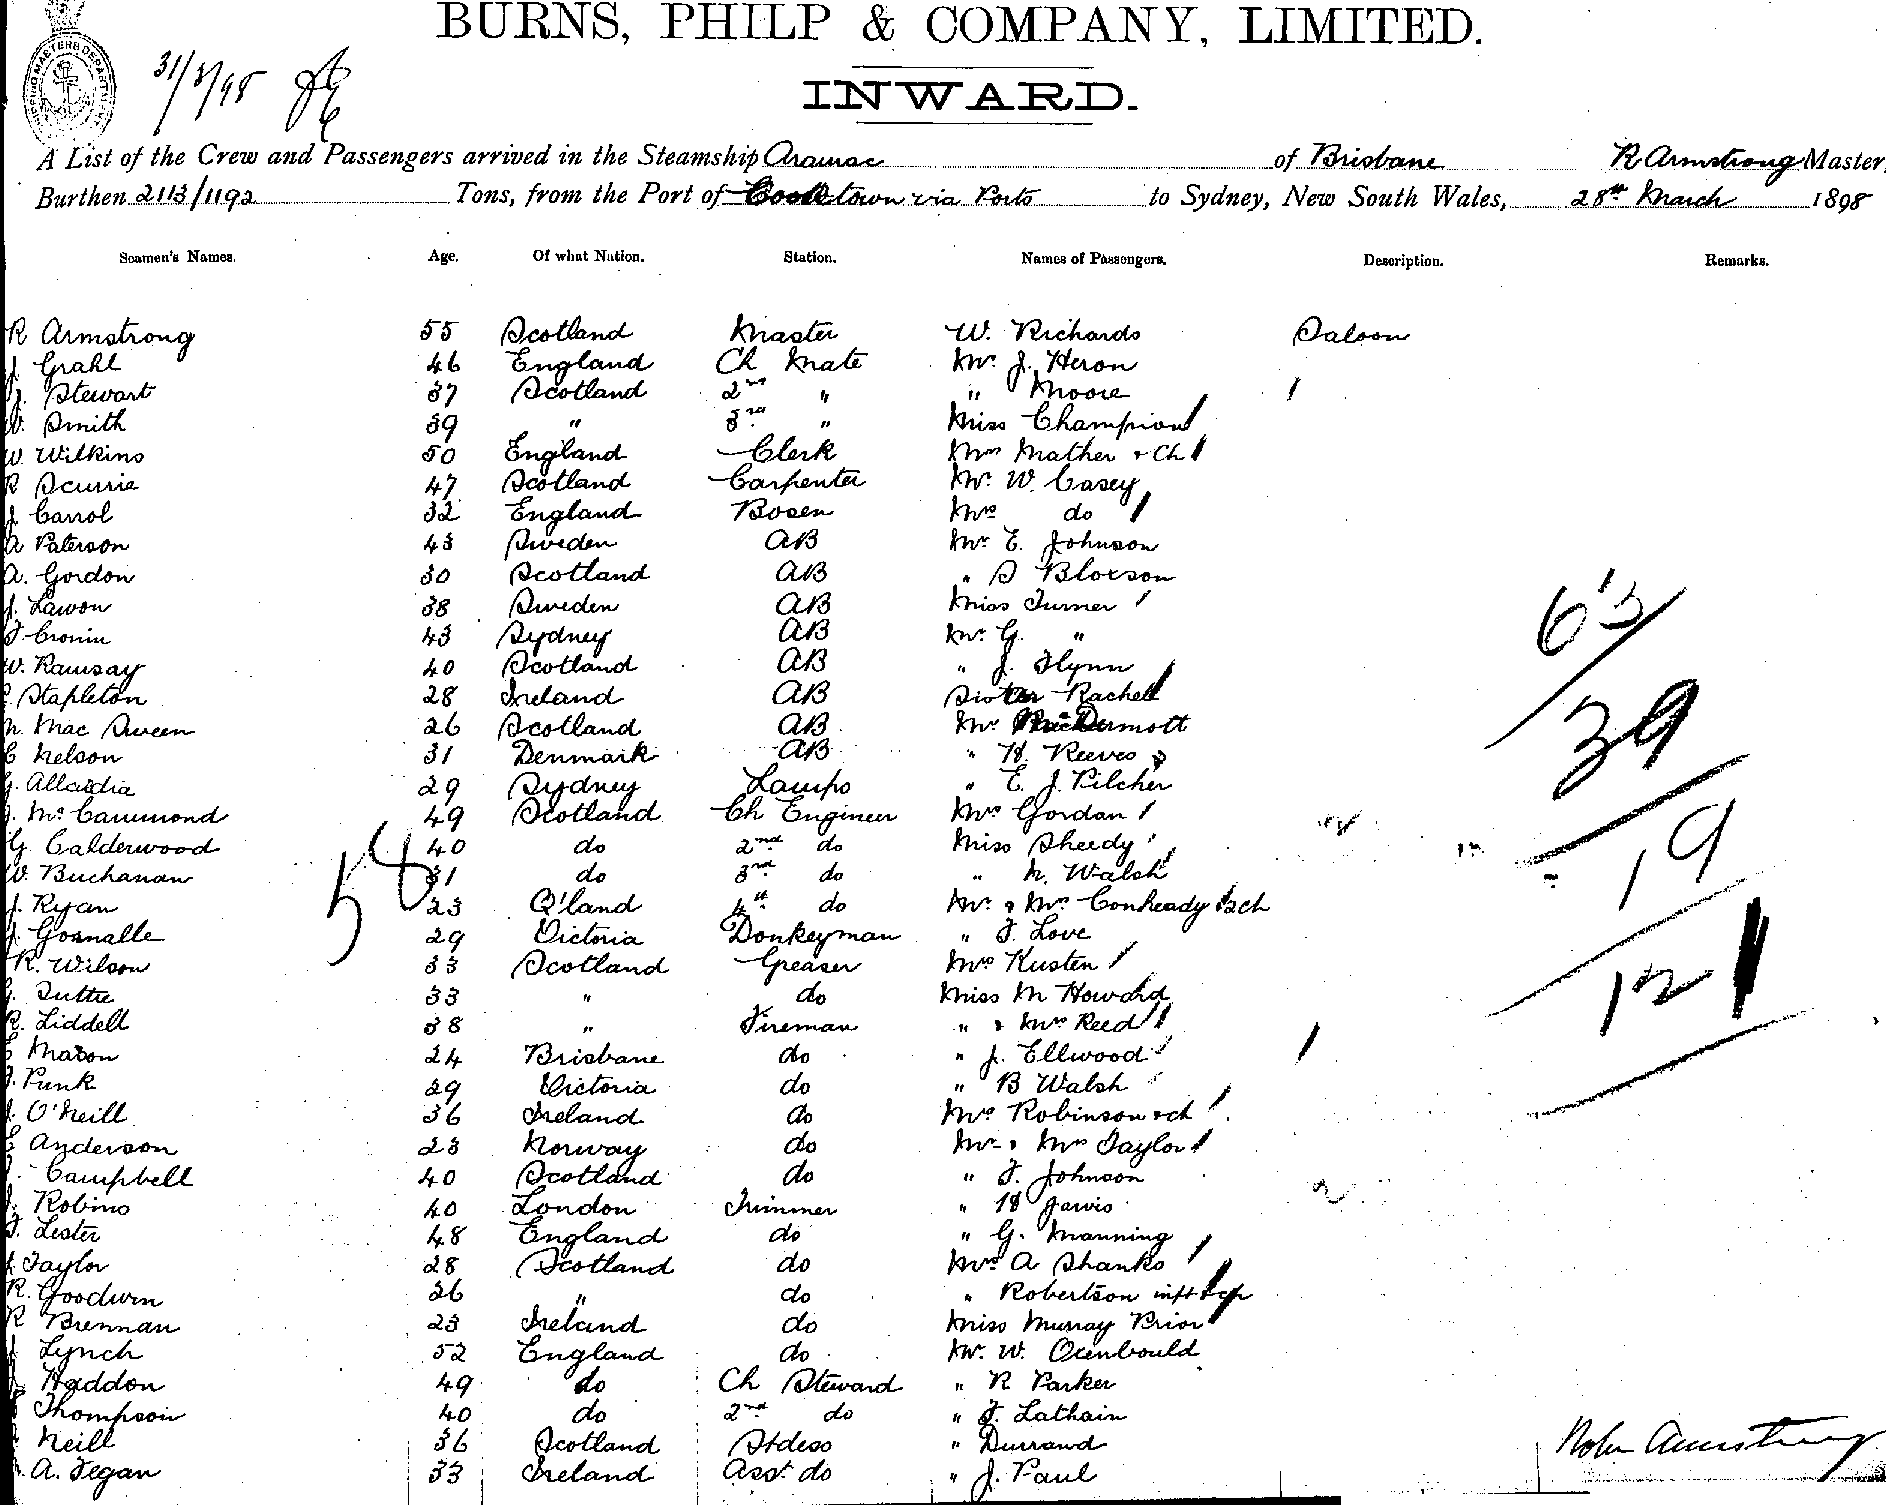 BURNS, PHILP & COMPANY, LIMITED.
31/3/98
INWARD.
A List of the Crew and Passengers arrived in the Steamship Aramac of Brisbane R Armstrong Master,
Burthen 2113/1192 Tons, from the Port of Cooktown via Ports to Sydney, New South Wales, 28th March 1898
Seamen's Names. Age. Of what Nation. Station. Names of Passengers. Description. Remarks.
R Armstrong 55 Scotland Master W. Richards Saloon
J Grahl 46 England Ch Mate Mr. J. Heron
Stewart 37 Scotland 2nd " " Moore
W. Smith 39 " 3rd " Miss Champion
W. Wilkins 50 England Clerk Mrs Mather & Ch
R Scurrie 47 Scotland Carpenter Mr. W. Casey
J Carrol 32 England Bosen Mrs do
A Paterson 43 Sweden AB Mr E. Johnson
A. Gordon 30 Scotland AB " S Bloxson
J. Lawon 38 Sweden AB Miss Turner
T. Cronin 43 Sydney AB Mr. G. "
W. Ramsay 40 Scotland AB " J. Flynn
Stapleton 28 Ireland AB Sister Rachel
Mac Sween 26 Scotland AB Mr MacDermott
C Nelson 31 Denmark AB " H. Reeves
G. Allardia 29 Sydney Lamps " E. J. Pilcher
Mc Cammond 49 Scotland Ch Engineer Mrs Gordan
G Calderwood 40 do 2nd do Miss Sheedy
W. Buchanan 31 do 3rd do " N. Walsh
J. Ryan 23 Q'land 4th do Mr. & Mrs Conheady & 2ch
J. Gosnalle 29 Victoria Donkeyman " F. Love
R. Wilson 33 Scotland Greaser Mrs Kusten
G. Suttie 33 " do Miss M Howard
R. Liddell 38 " Fireman " & Mrs Reed
Mason 24 Brisbane do " J. Ellwood
J. Punk 29 Victoria do " B Walsh
J. O'Neill 36 Ireland do Mrs Robinson & ch
Anderson 23 Norway do Mr. & Mrs Taylor
Campbell 40 Scotland do " F. Johnson
J. Robins 40 London Trimmer " H Jarvis
T. Lester 48 England do " G. Manning
Taylor 28 Scotland do Mrs A Shanks
R. Goodwin 26 " do " Robertson inft & ch
R Brennan 23 Ireland do Miss Murray Prior
J Lynch 52 England do Mr. W. Oxenbould
Haddon 49 do Ch Steward " R Parker
Thompson 40 do 2nd do " F. Lathain
Neill 36 Scotland Stdess " Durrand
A. Fegan 33 Ireland Asst do " J. Paul
58
63
39
19
12